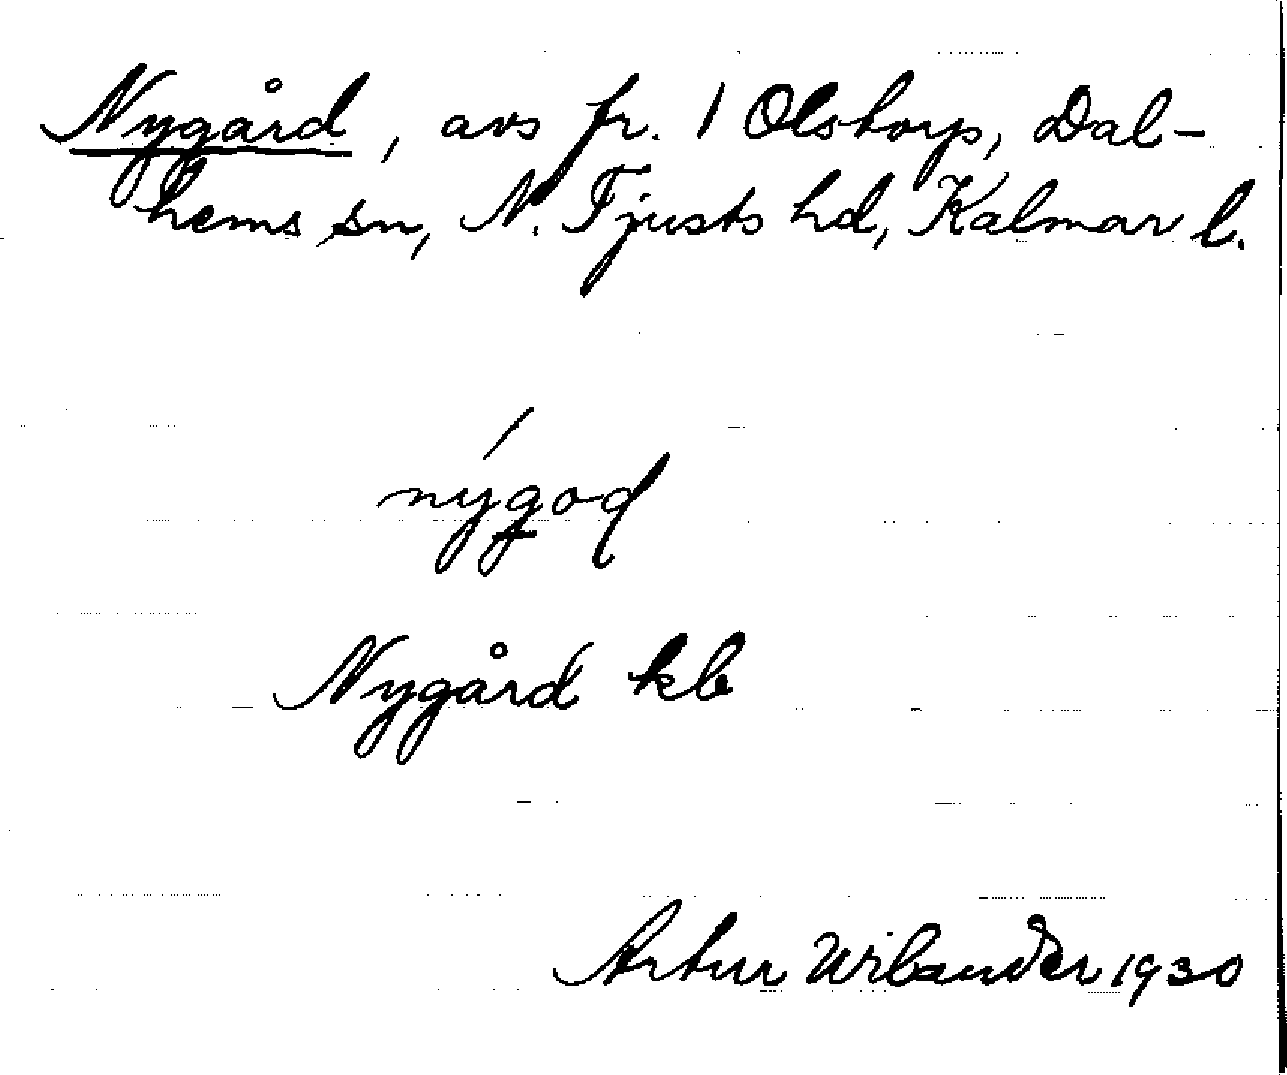 Nygård, avs fr. 1 Olstorp, Dal-
hems sn, N. Tjusts hd, Kalmar l.
nýgod
Nygård kb
Artur Wilander 1930